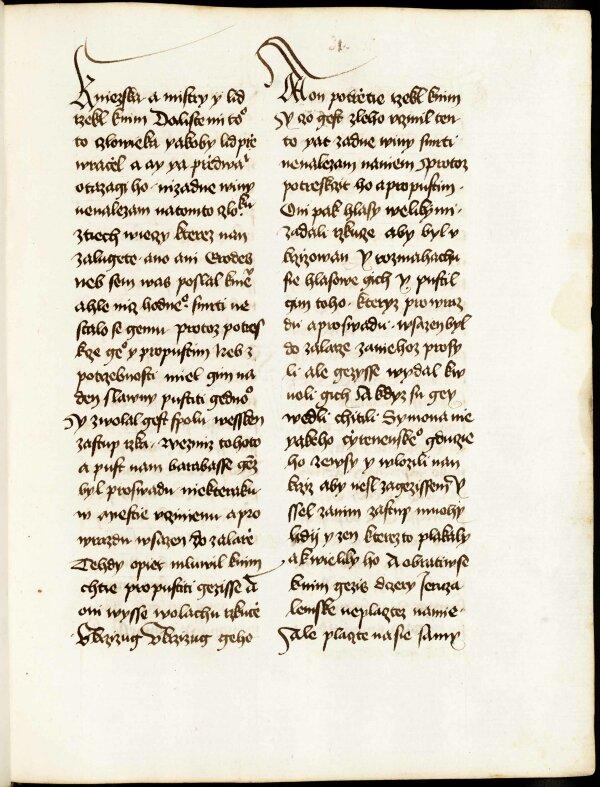 Kniezska a mistry y lid
rzekl knim Daliste mi toᵒ
to czlowieka yakoby lid pře
wracel a ay ya předwaᵐⁱ
otazagi ho nizadne winy
nenalezam natomto czloᵏᵘ
ztiech wieczy kterez nan
zalugete ano ani Erodes
neb sem was poslal kniemu
ahle nicz hodneᵒ smrti ne
stalo se gemu protoz potres
kze geᵒ y propustim Neb z
potrzebnosti miel gim na
den slawny pustiti gednoᵒ
Y zwolal gest spolu wessken
zastup rzka wezmiz tohoto
a pust nam barabasse genz
byl proswadu niekteraku
w miestie vczinienu a pro
wrazdu wsazen do zalaře
Tehdy opiet mluwil knim
chtie propustiti gezisse A
oni wysse wolachu rzkuce
Vkrzizug Vkrzizug geho
A on potretie rzekl knim
Y czo gest zleho vczinil ten
to yat zadne winy smrti
nenalezam naniem Protoz
potreskzit ho a propustim
Oni pak hlasy welikymi
zadali rzkucze aby byl v
krzizowan Y rozmahachu
sie hlasowe gich Y pustil
gim toho kteryz pro wraz
du a proswadu wsazen byl
do zalarze zaniehoz prosy
li ale gezysse wydal kw
uoli gich A kdyz su gey
wedli chitili Symona nie
yakeho cyrenenskeᵒ gducze
ho zewsy y wlozili nan
krziz aby nesl zagezissem Y
ssel zanim zastup mnohy
lidij y zen kterezto plakaly
a kwielily ho A obratiwse
knim gezis dczery Jeruza
lemske neplacztez namie
ale placzte nasie samy